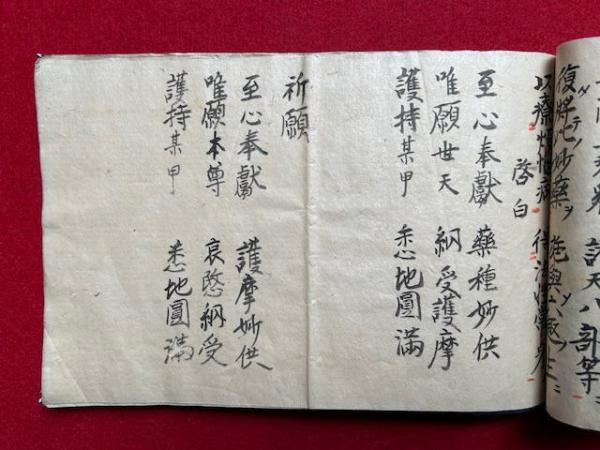 天八部等
復將此妙藥ヲ 施與六趣生ニ
以療煩惱病 得
啓白
至心奉獻 藥種妙供
唯願世天 納受護摩
護持某甲 悉地圓滿
祈願
至心奉獻 護摩妙供
唯願本尊 哀愍納受
護持某甲 悉地圓滿